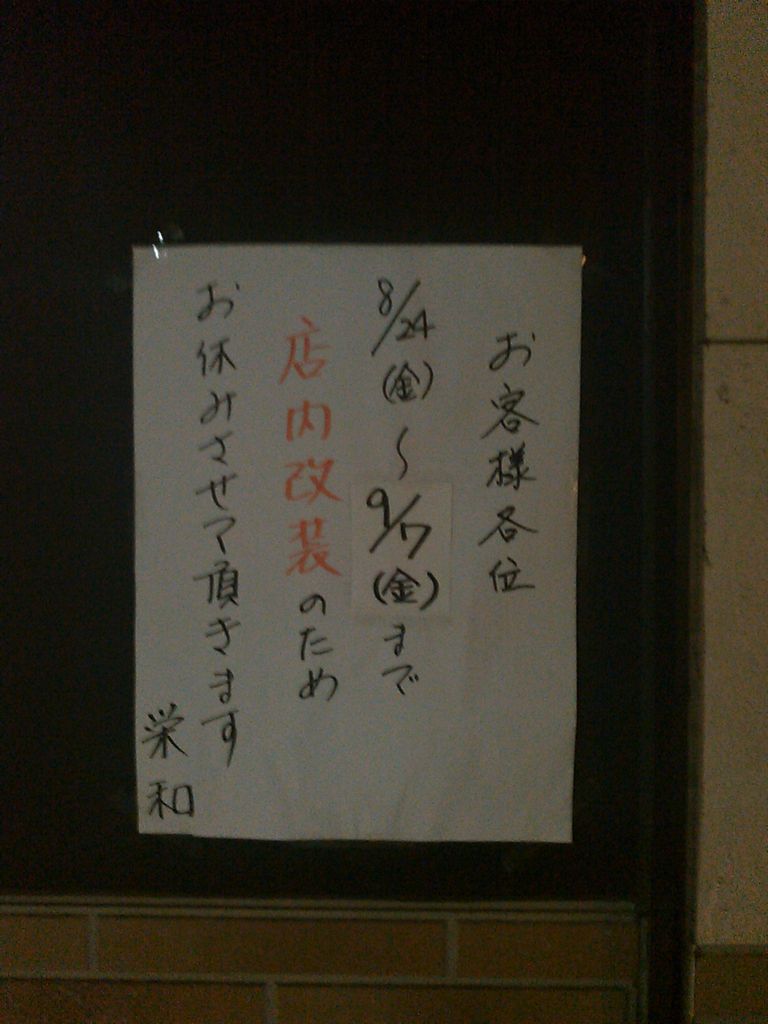 お客様各位
8/24(金)〜9/7(金)まで
店内改装のため
お休みさせて頂きます
栄和